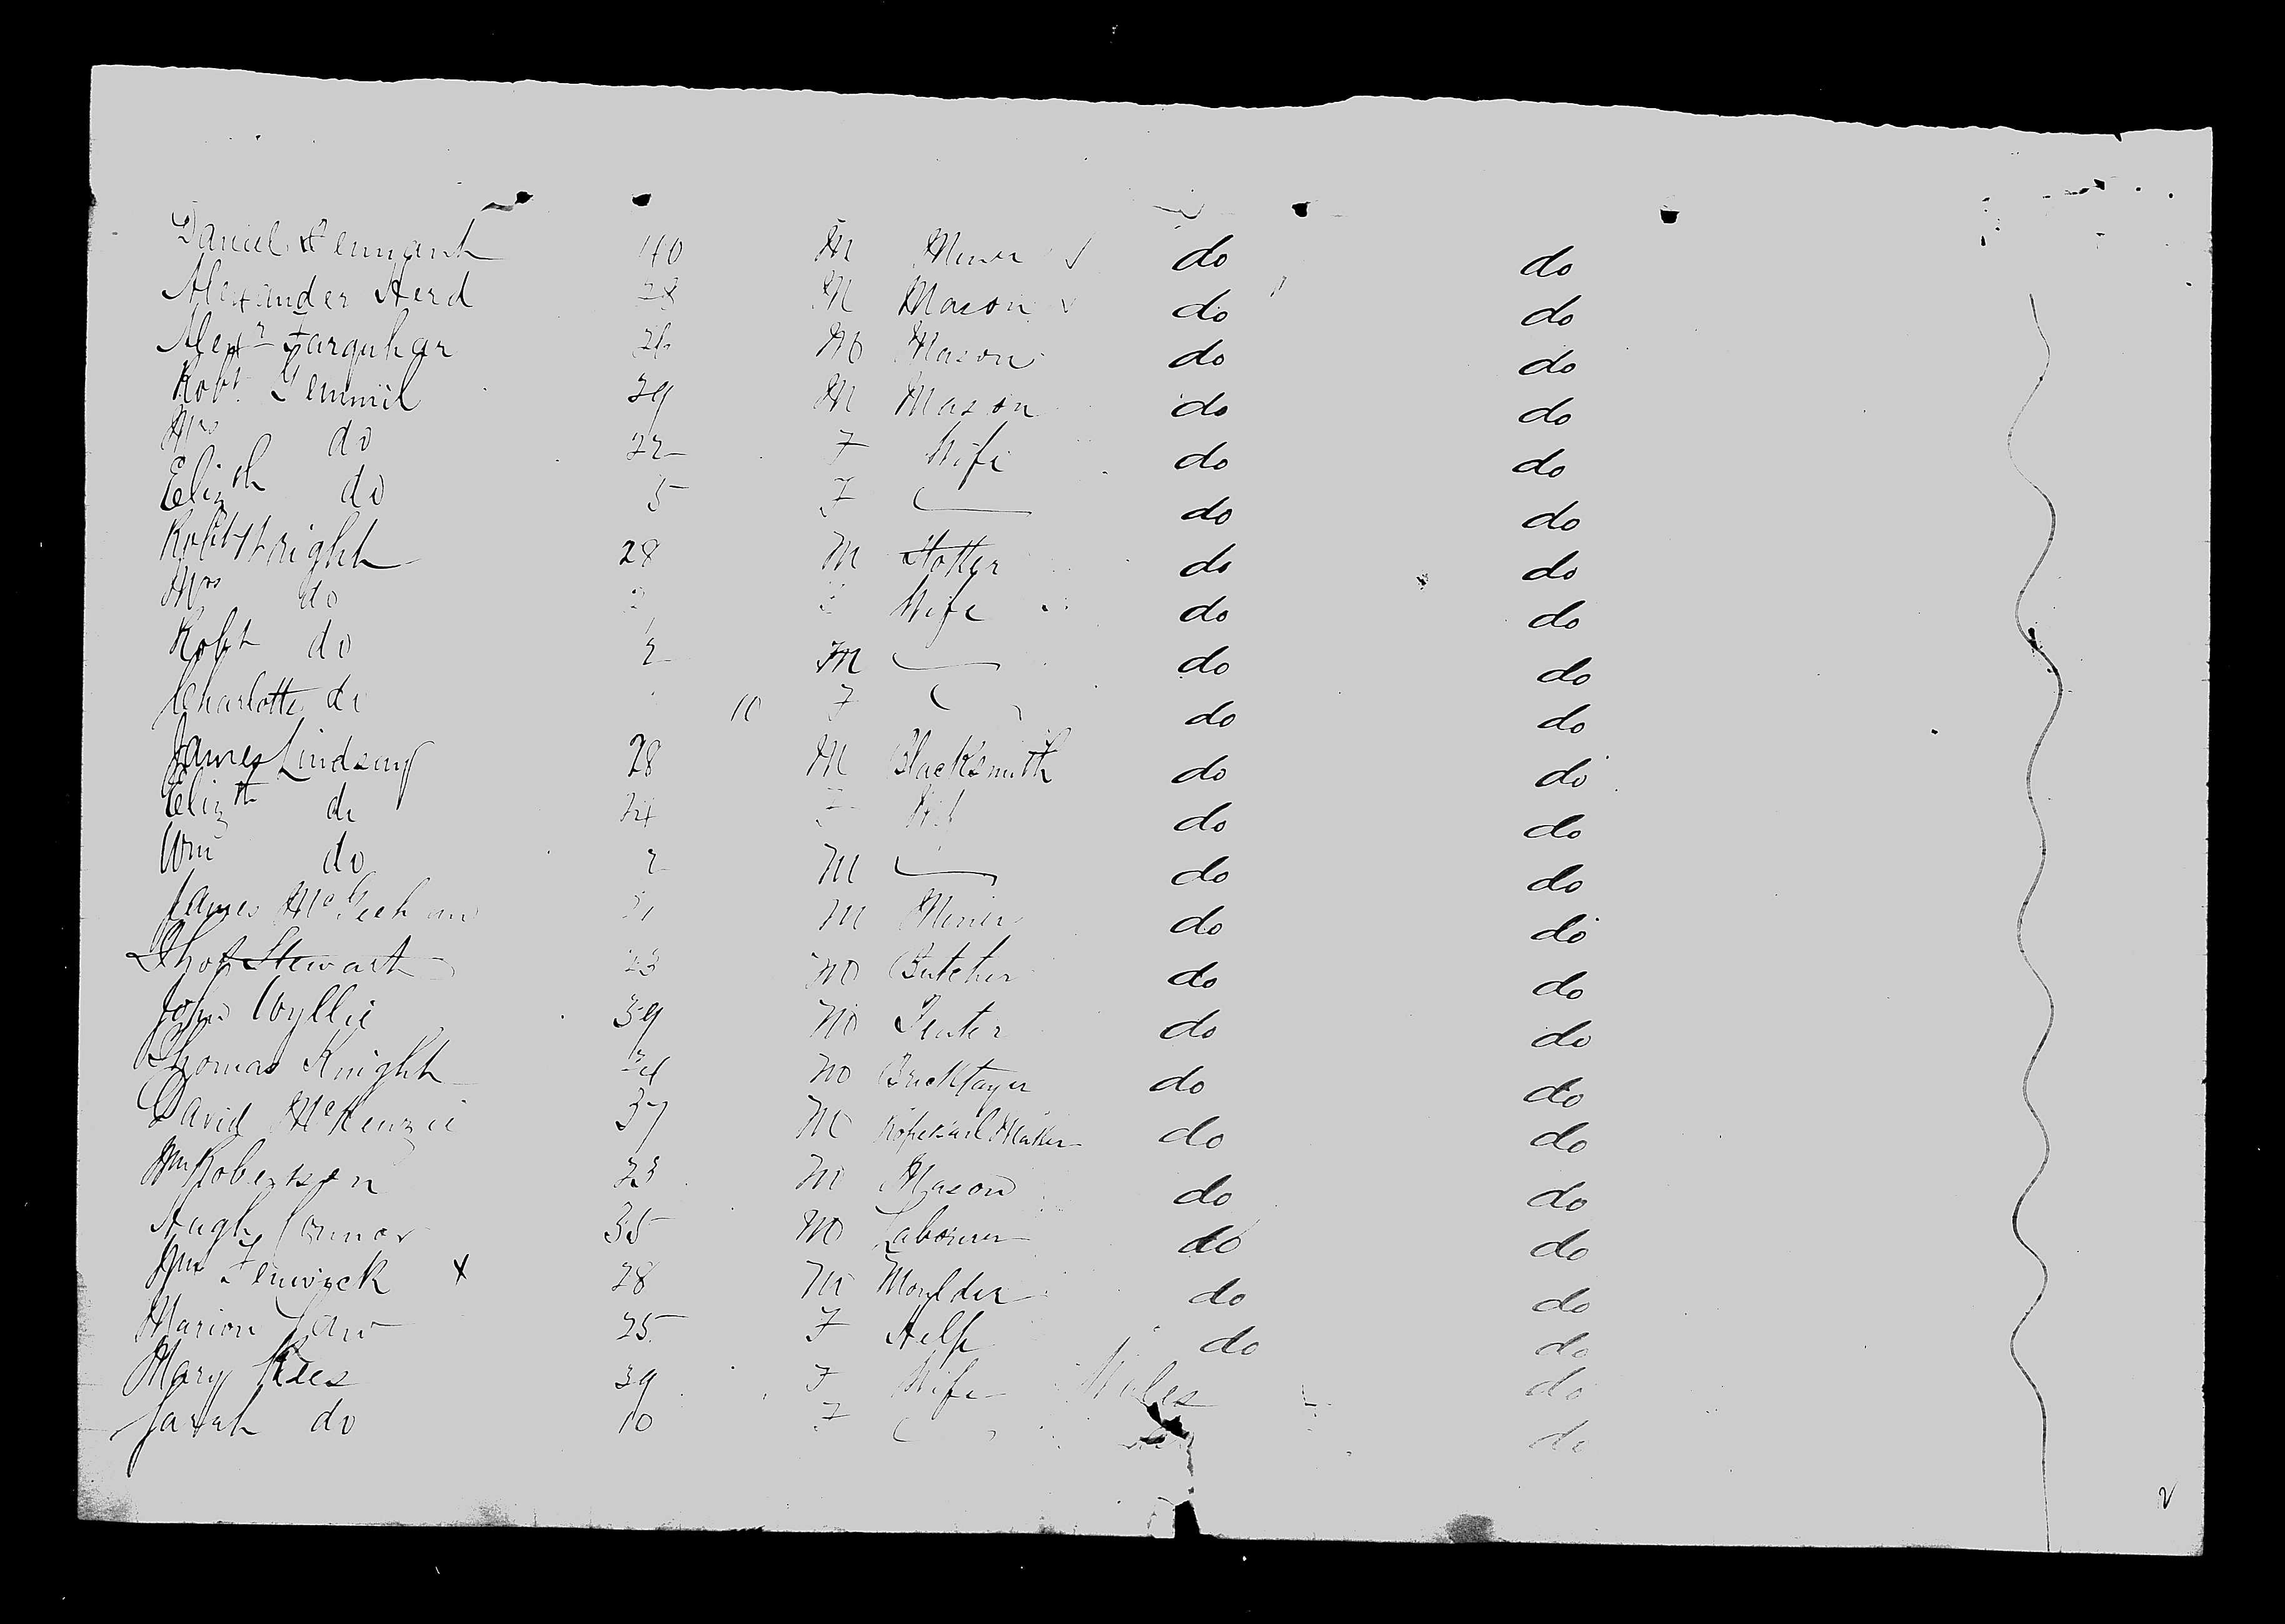 Daniel Tennant 40 M Miner do do
Alexander Herd 28 M Mason do do
Alexr Farquhar M Mason do do
Robt Gemmil 29 M Mason do do
Mrs do 22 F Wife do do
Elizth do 5 F do do
Robt Wright 28 M Potter do do
Mrs do Wife do do
Robt do 2 M do do
Charlotte do 10 F do do
James Lindsay 28 M Blacksmith do do
Elizth do 24 F do do
Wm do 2 M do do
James McGeehan M Miner do do
Thos Stewart 23 M Butcher do do
John Wyllie 39 M do do
Thomas Knight M Bricklayer do do
David McKenzie 37 M Maker do do
Wm Robertson 23 M Mason do do
Hugh Connor 35 M Labourer do do
Jno Fenwick x 28 M Moulder do do
Marion Law 25 F Help do do
Mary Rees 39 F Wife Wales do
Sarah do 10 F do